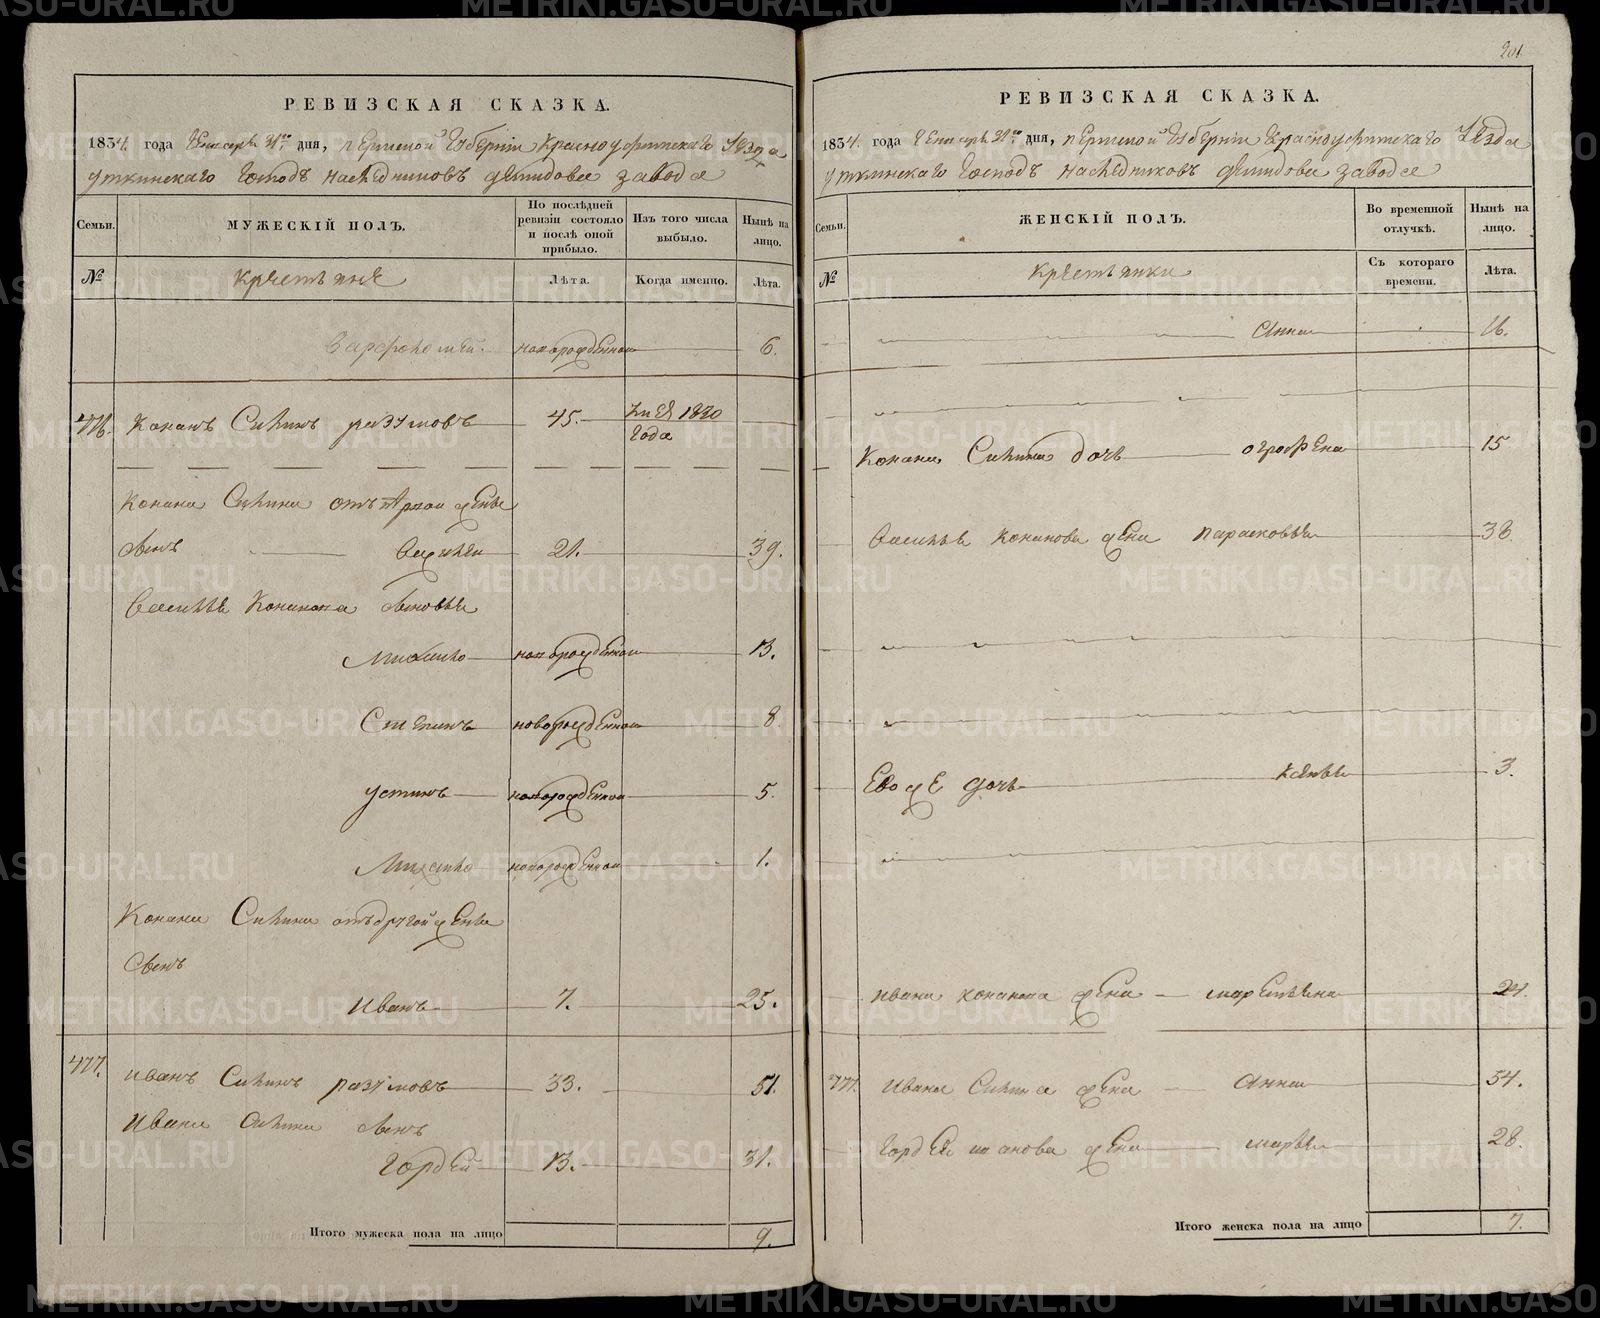 201
РЕВИЗСКАЯ СКАЗКА.
1834. года Генваря 31го дня, Пермской Губерніи Красноуфимскаго Уезда
Уткинскаго Господъ наследниковъ Демидова завода
Семьи.
МУЖЕСКІЙ ПОЛЪ.
По послѣдней ревизіи состояло и послѣ оной прибыло.
Изъ того числа выбыло.
Нынѣ на лицо.
№
Крестьяне
Лѣта.
Когда именно.
Лѣта.
Варфоломей. новорожденной 6.
476. Кананъ Силинъ разумовъ 45. Умея 1820
года
Канана Силина отъ первой жены
сынъ Василеи 21. 39.
Василья Кананова сыновья
Михаило новорожденной 13.
Степанъ новорожденной 8
устинъ новорожденной 5.
Михаило новорожденной 1.
Канана Силина отъ другой жены
сынъ
Иванъ 7. 25.
477. иванъ Силинъ разумовъ 33. 51.
Ивана Силина сынъ
Гордей 13. 31.
Итого мужеска пола на лицо 9.
РЕВИЗСКАЯ СКАЗКА.
1834. года Генваря 31го дня, Пермской Губерніи Красноуфимскаго Уезда
Уткинскаго Господъ наследниковъ Демидова завода
Семьи.
ЖЕНСКІЙ ПОЛЪ.
Во временной отлучкѣ.
Нынѣ на лицо.
№
Крестьянки
Съ котораго времени.
Лѣта.
Анна 16.
Канана Силина дочь огрофена 15
Василья Кананова жена парасковья 38
Евоже дочь Ксенья 3.
ивана кананова жена маремьяна 24.
477. Ивана Силина жена Анна 54.
Гордея иванова жена марья 28.
Итого женска пола на лицо 7.
METRIKI.GASO-URAL.RU